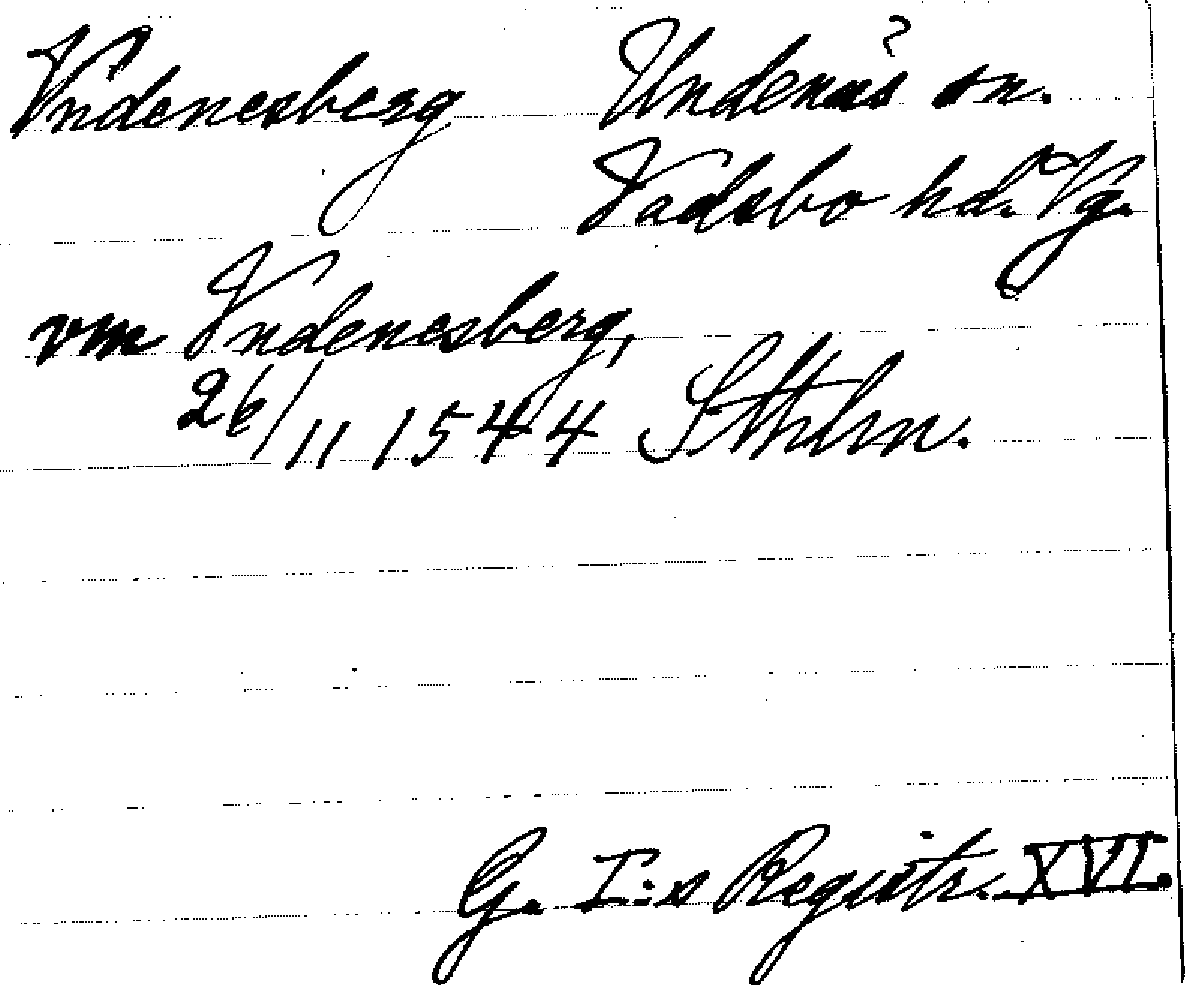 Vndenesberg Undenäs? sn.
Vadsbo hd. Vg.
vm Vndenesberg,
26/11 1544 Sthlm.
G. I:s Registr. XVI.